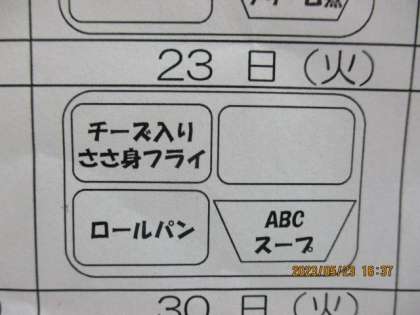 23 日 (火)
チーズ入り
ささ身フライ
ロールパン
ABC
スープ
2023/05/23 16:37
30 日 (火)